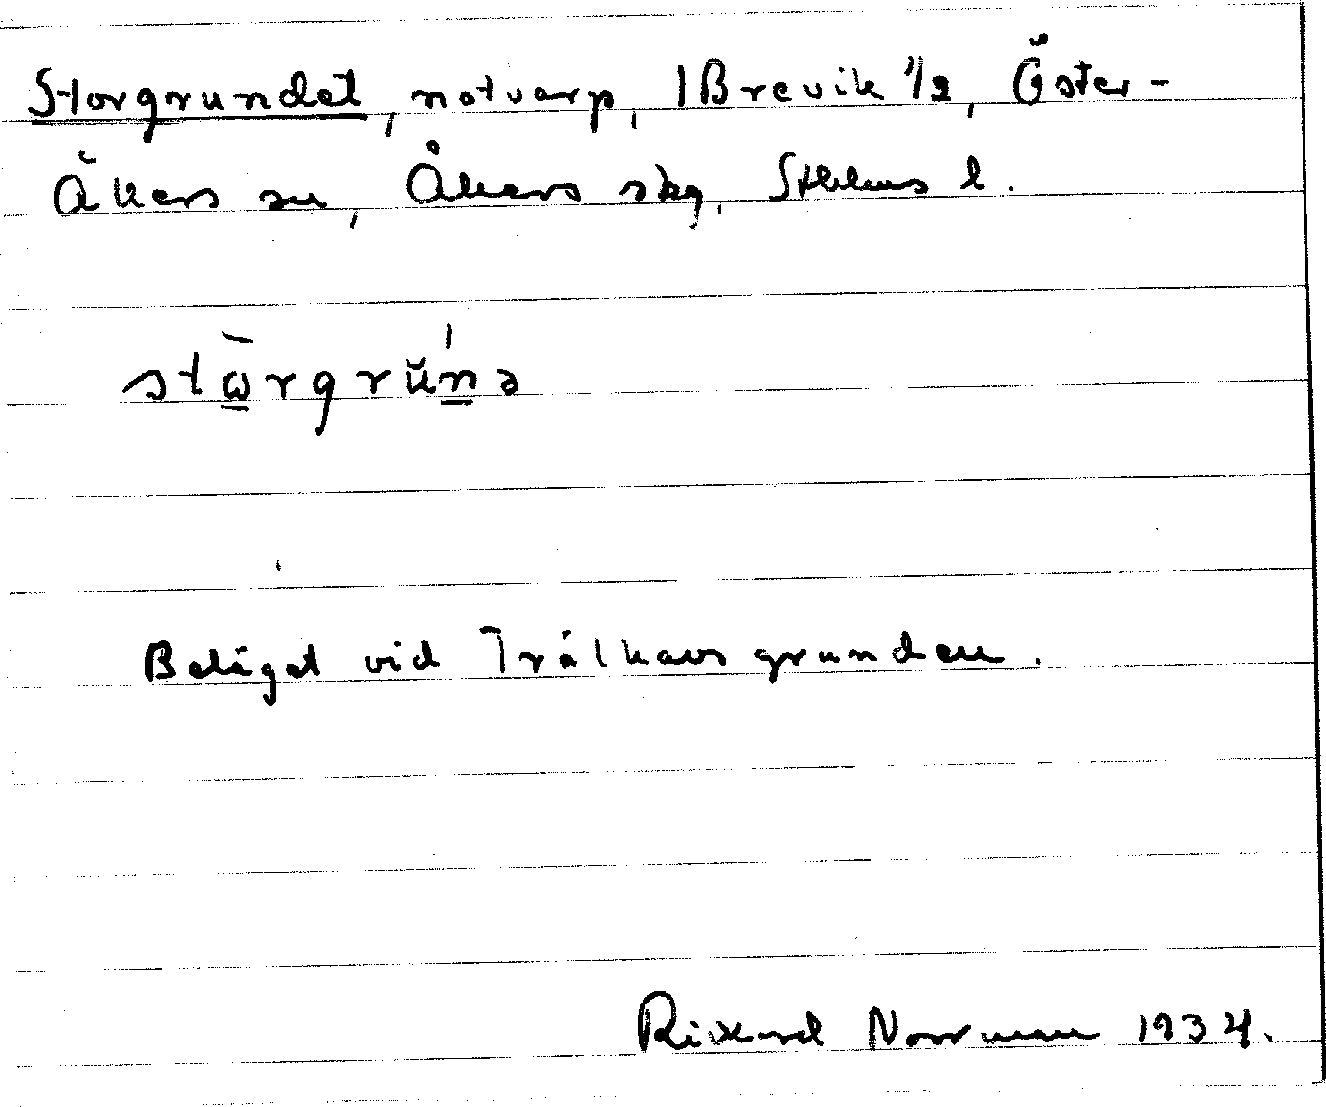 Storgrundet, notvarp, 1 Brevik 1/2, Öster-
Åkers sn, Åkers skg, Sthlms l.
stὼ̲rgrŭń̲ə
Beläget vid Trälhavsgrunden.
Rikard Norrman 1934.